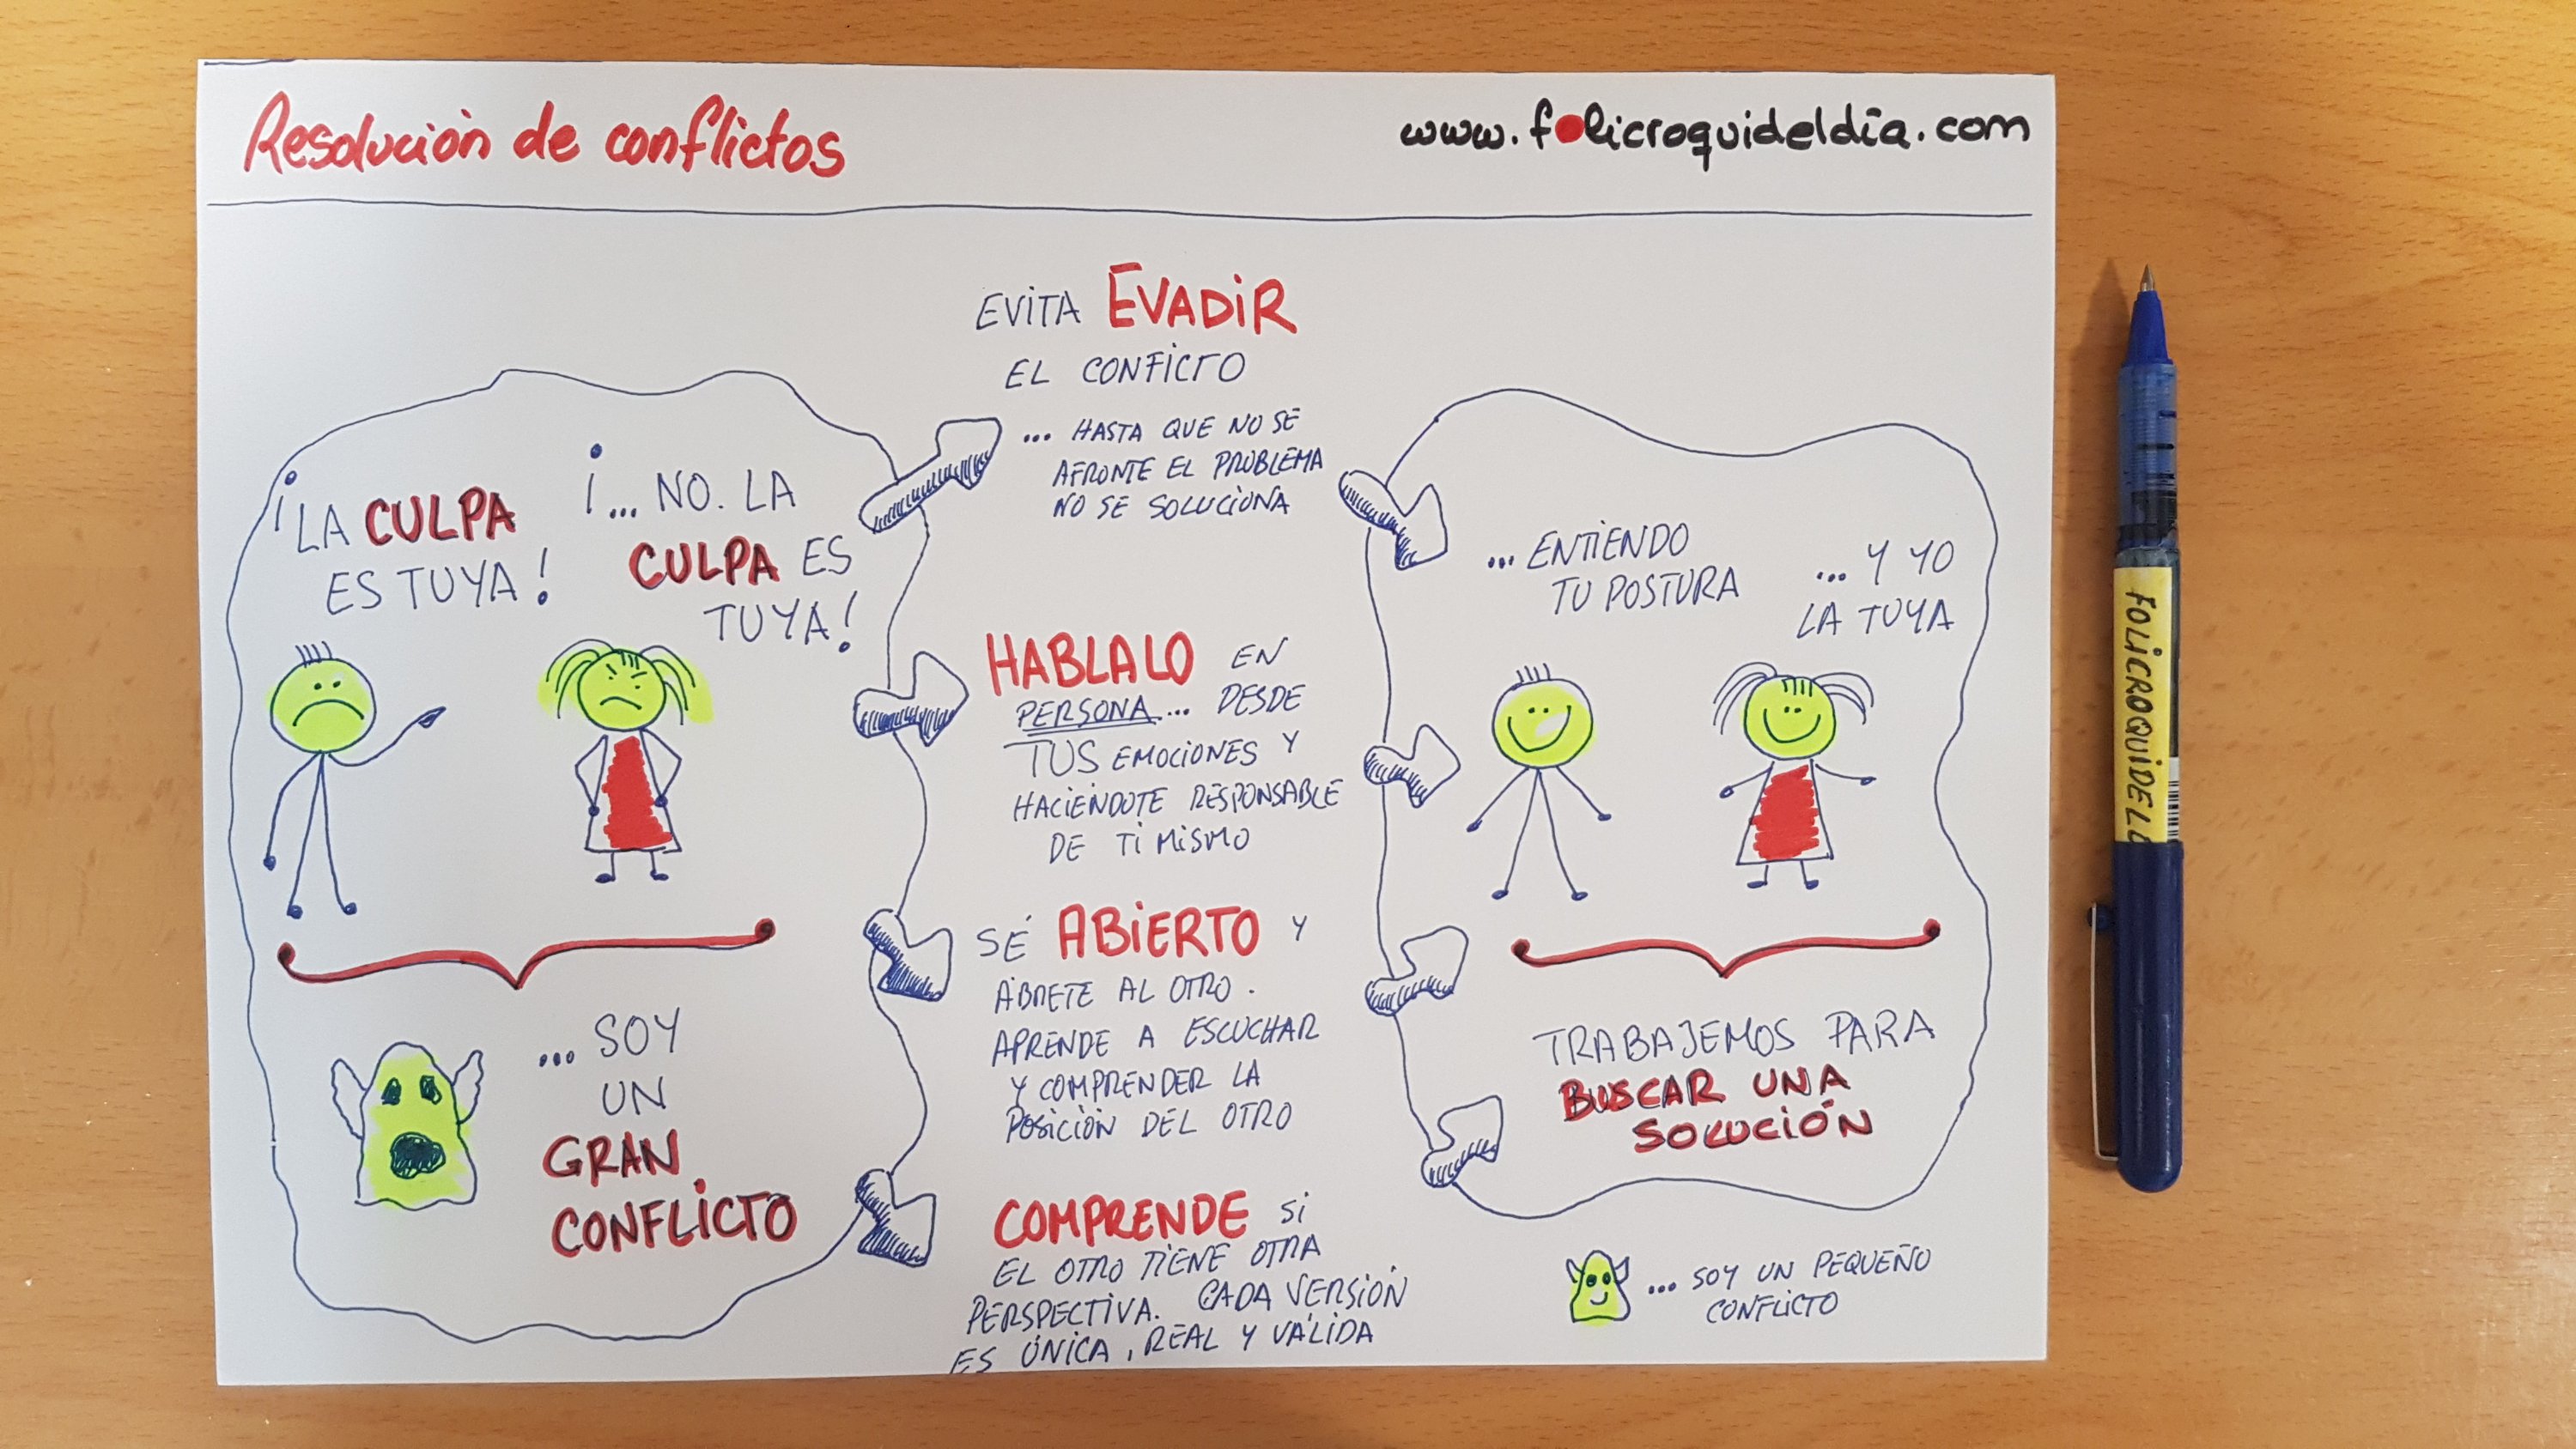 Resolución de conflictos
www.folicroquideldía.com
¡LA CULPA
ES TUYA!
¡... NO. LA
CULPA ES
TUYA!
... SOY
UN
GRAN
CONFLICTO
EVITA EVADIR
EL CONFICTO
... HASTA QUE NO SE
AFRONTE EL PROBLEMA
NO SE SOLUCIONA
HABLALO EN
PERSONA... DESDE
TUS EMOCIONES Y
HACIENDOTE RESPONSABLE
DE TI MISMO
SÉ ABIERTO Y
ÁBRETE AL OTRO.
APRENDE A ESCUCHAR
Y COMPRENDER LA
POSICIÓN DEL OTRO
COMPRENDE SI
EL OTRO TIENE OTRA
PERSPECTIVA. CADA VERSIÓN
ES ÚNICA, REAL Y VÁLIDA
... ENTIENDO
TU POSTURA
... Y YO
LA TUYA
TRABAJEMOS PARA
BUSCAR UNA
SOLUCIÓN
... SOY UN PEQUEÑO
CONFLICTO
FOLICROQUIDEL